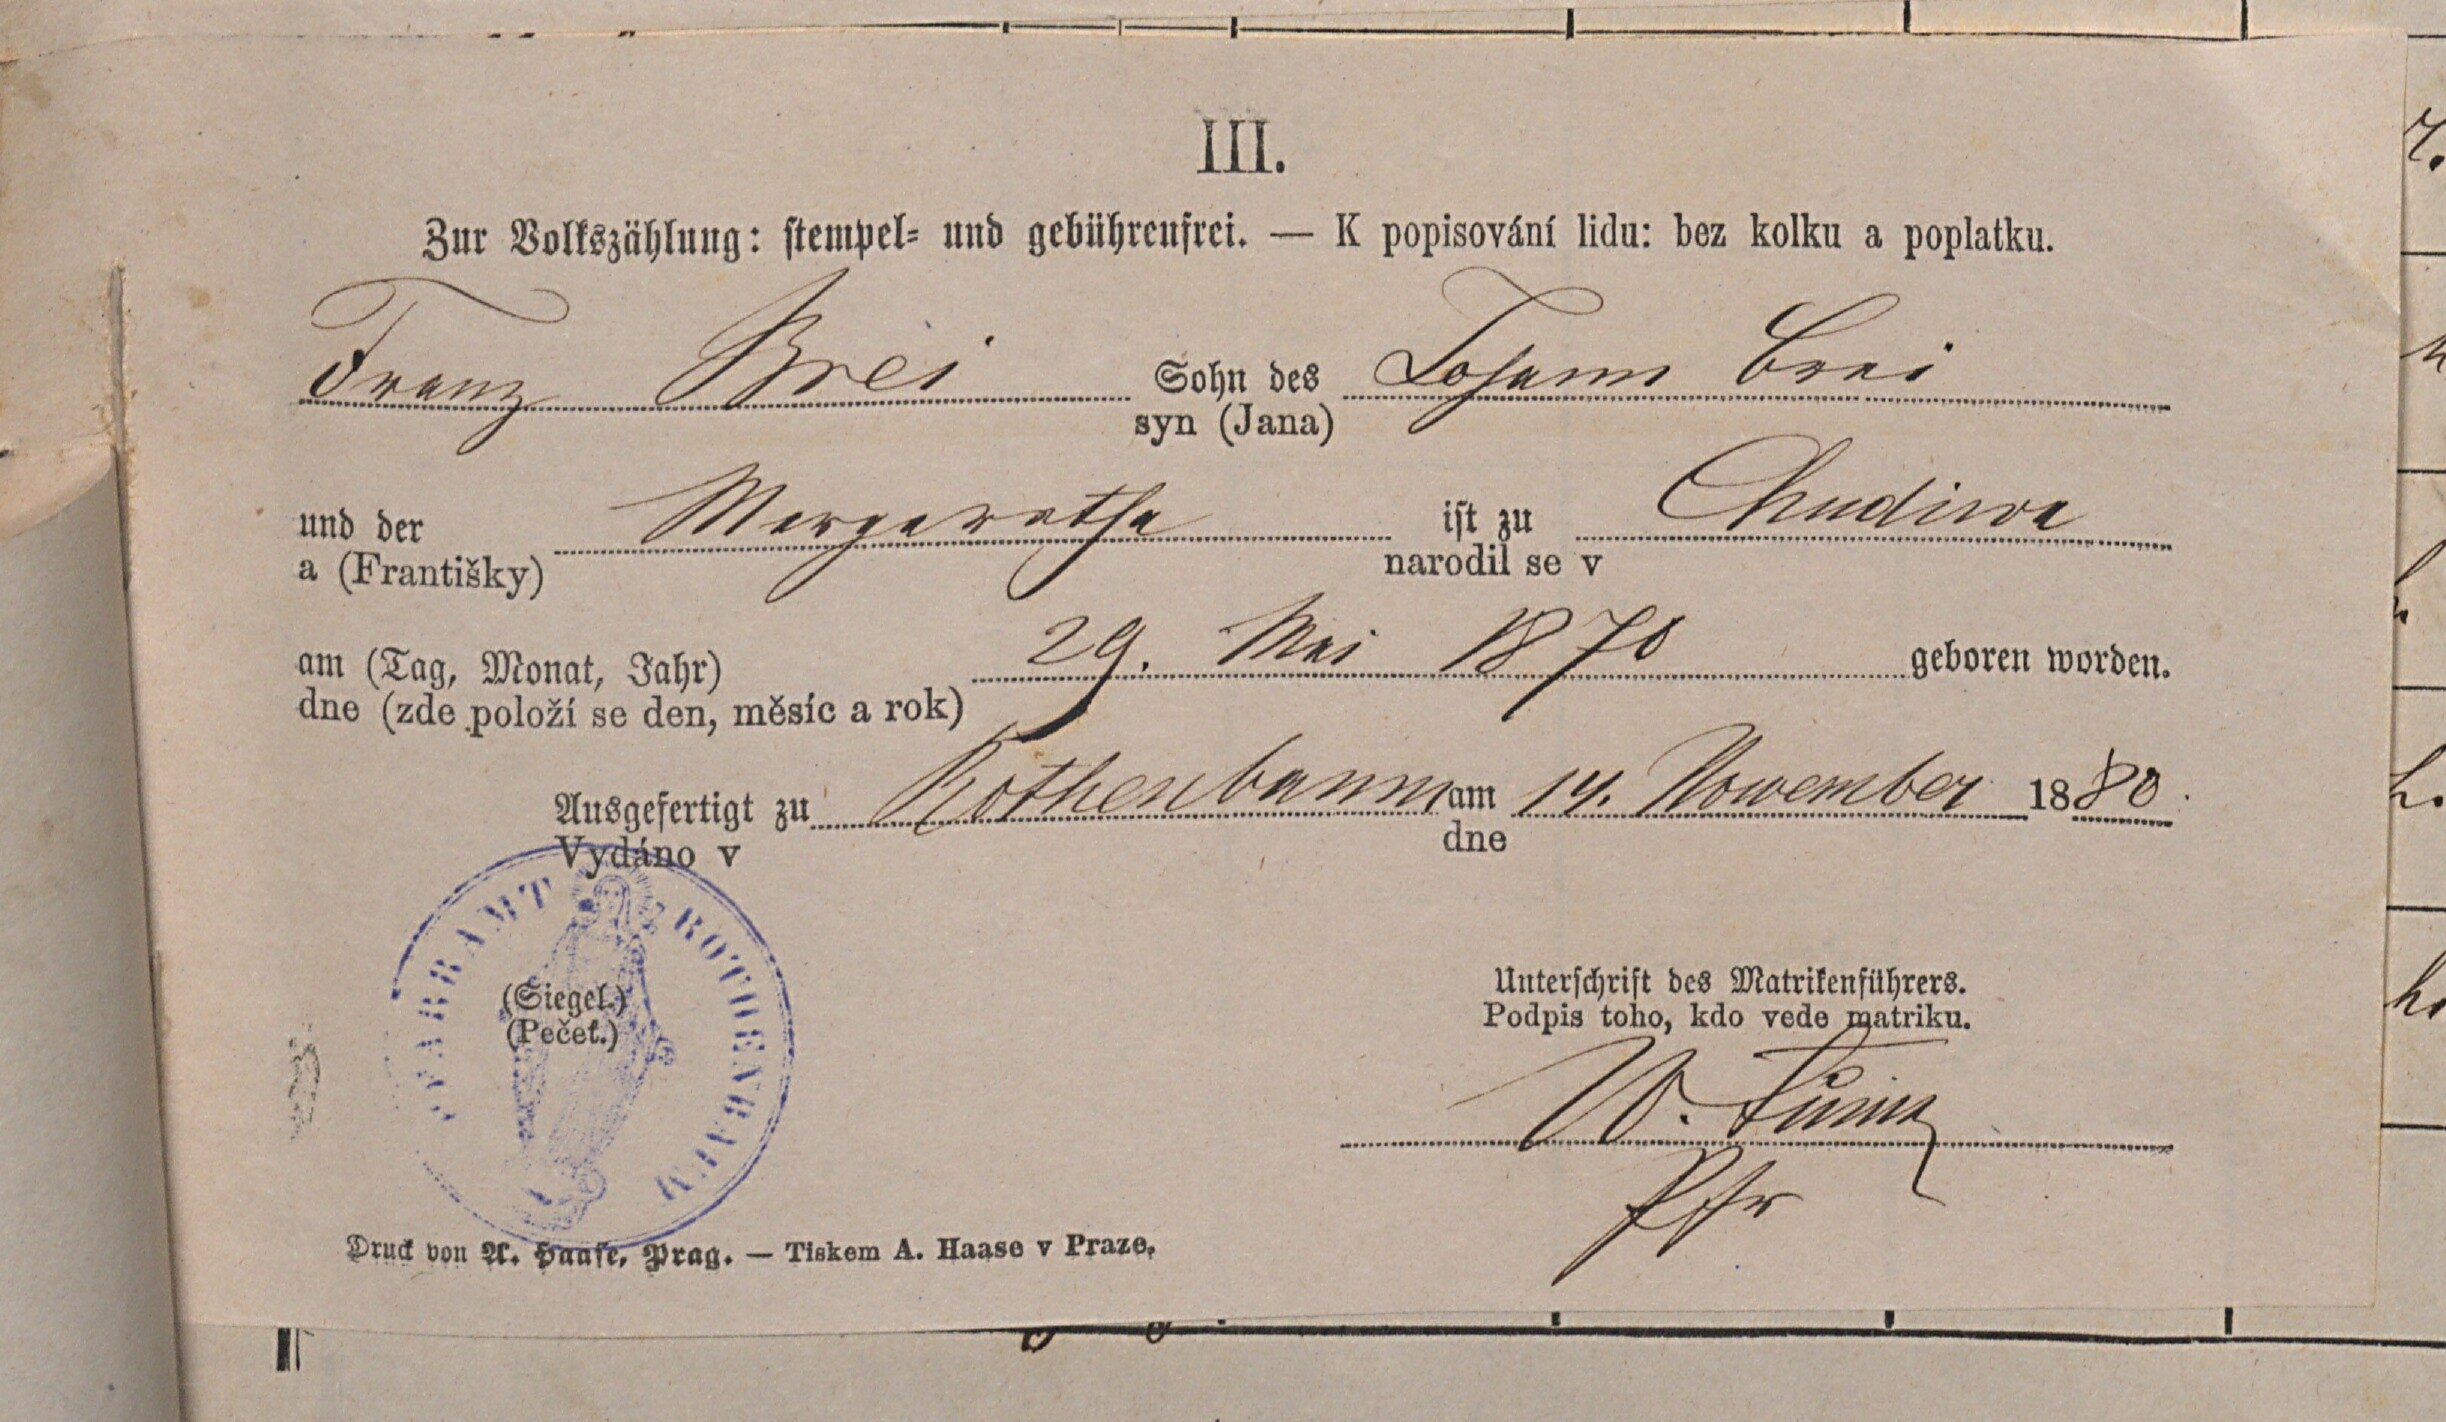 III.
Zur Volkszählung: stempel- und gebührenfrei. — K popisování lidu: bez kolku a poplatku.
Franz Brei Sohn des Johann Brei
syn (Jana)
und der Margaretha ist zu Chudiwa
a (Františky) narodil se v
am (Tag, Monat, Jahr) 29. Mai 1870 geboren worden.
dne (zde položí se den, měsíc a rok)
Ausgefertigt zu Rothenbaum am 14. November 1880
Vydáno v dne
PFARRAMT ROTHENBAUM
(Siegel.)
(Pečeť.)
Unterschrift des Matrikenführers.
Podpis toho, kdo vede matriku.
W.
Pfr
Druck von A. Haase, Prag. — Tiskem A. Haase v Praze.